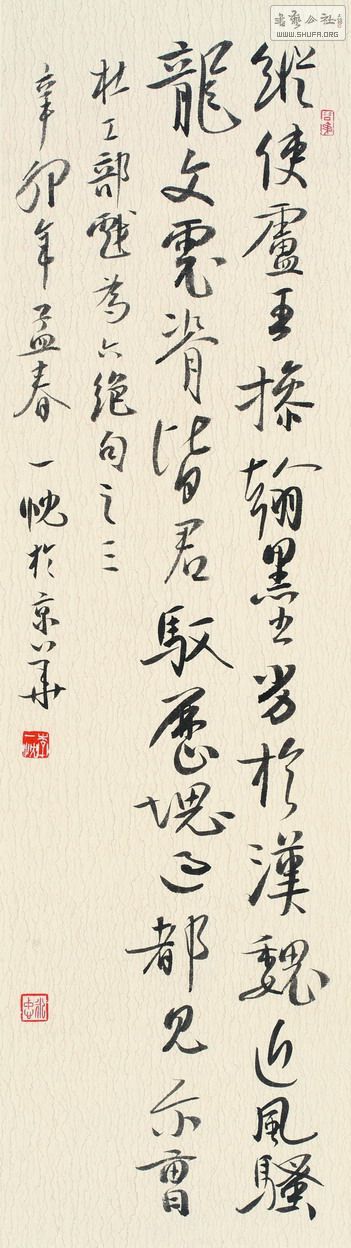 縱使盧王操翰墨劣於漢魏近風騷
龍文虎脊皆君馭歷塊過都見尔曹
杜工部戲為六絕句之三
辛卯年孟春一於京華
WWW.SHUFA.ORG